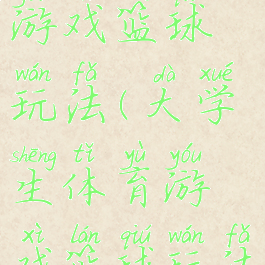 游戏篮球
wán fǎ dà xué
玩法(大学
shēng tǐ yù yóu
生体育游
xì lán qiú wán fǎ
戏篮球玩法